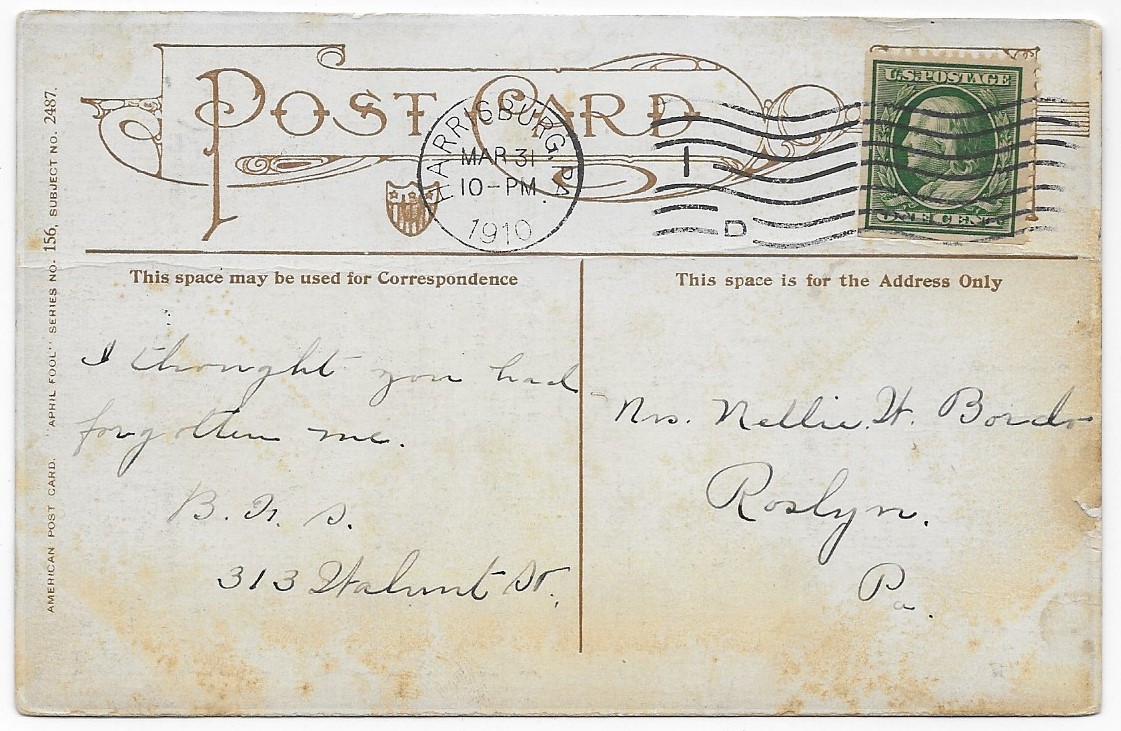 POST CARD
HARRISBURG, PA.
MAR 31
10-PM
1910
1
D
U.S. POSTAGE
ONE CENT
AMERICAN POST CARD. "APRIL FOOL" SERIES NO. 156, SUBJECT NO. 2487.
This space may be used for Correspondence
I thought you had
forgotten me.
B. F. S.
313 Walnut St.
This space is for the Address Only
Mrs. Nellie W. Bordo
Roslyn.
Pa.